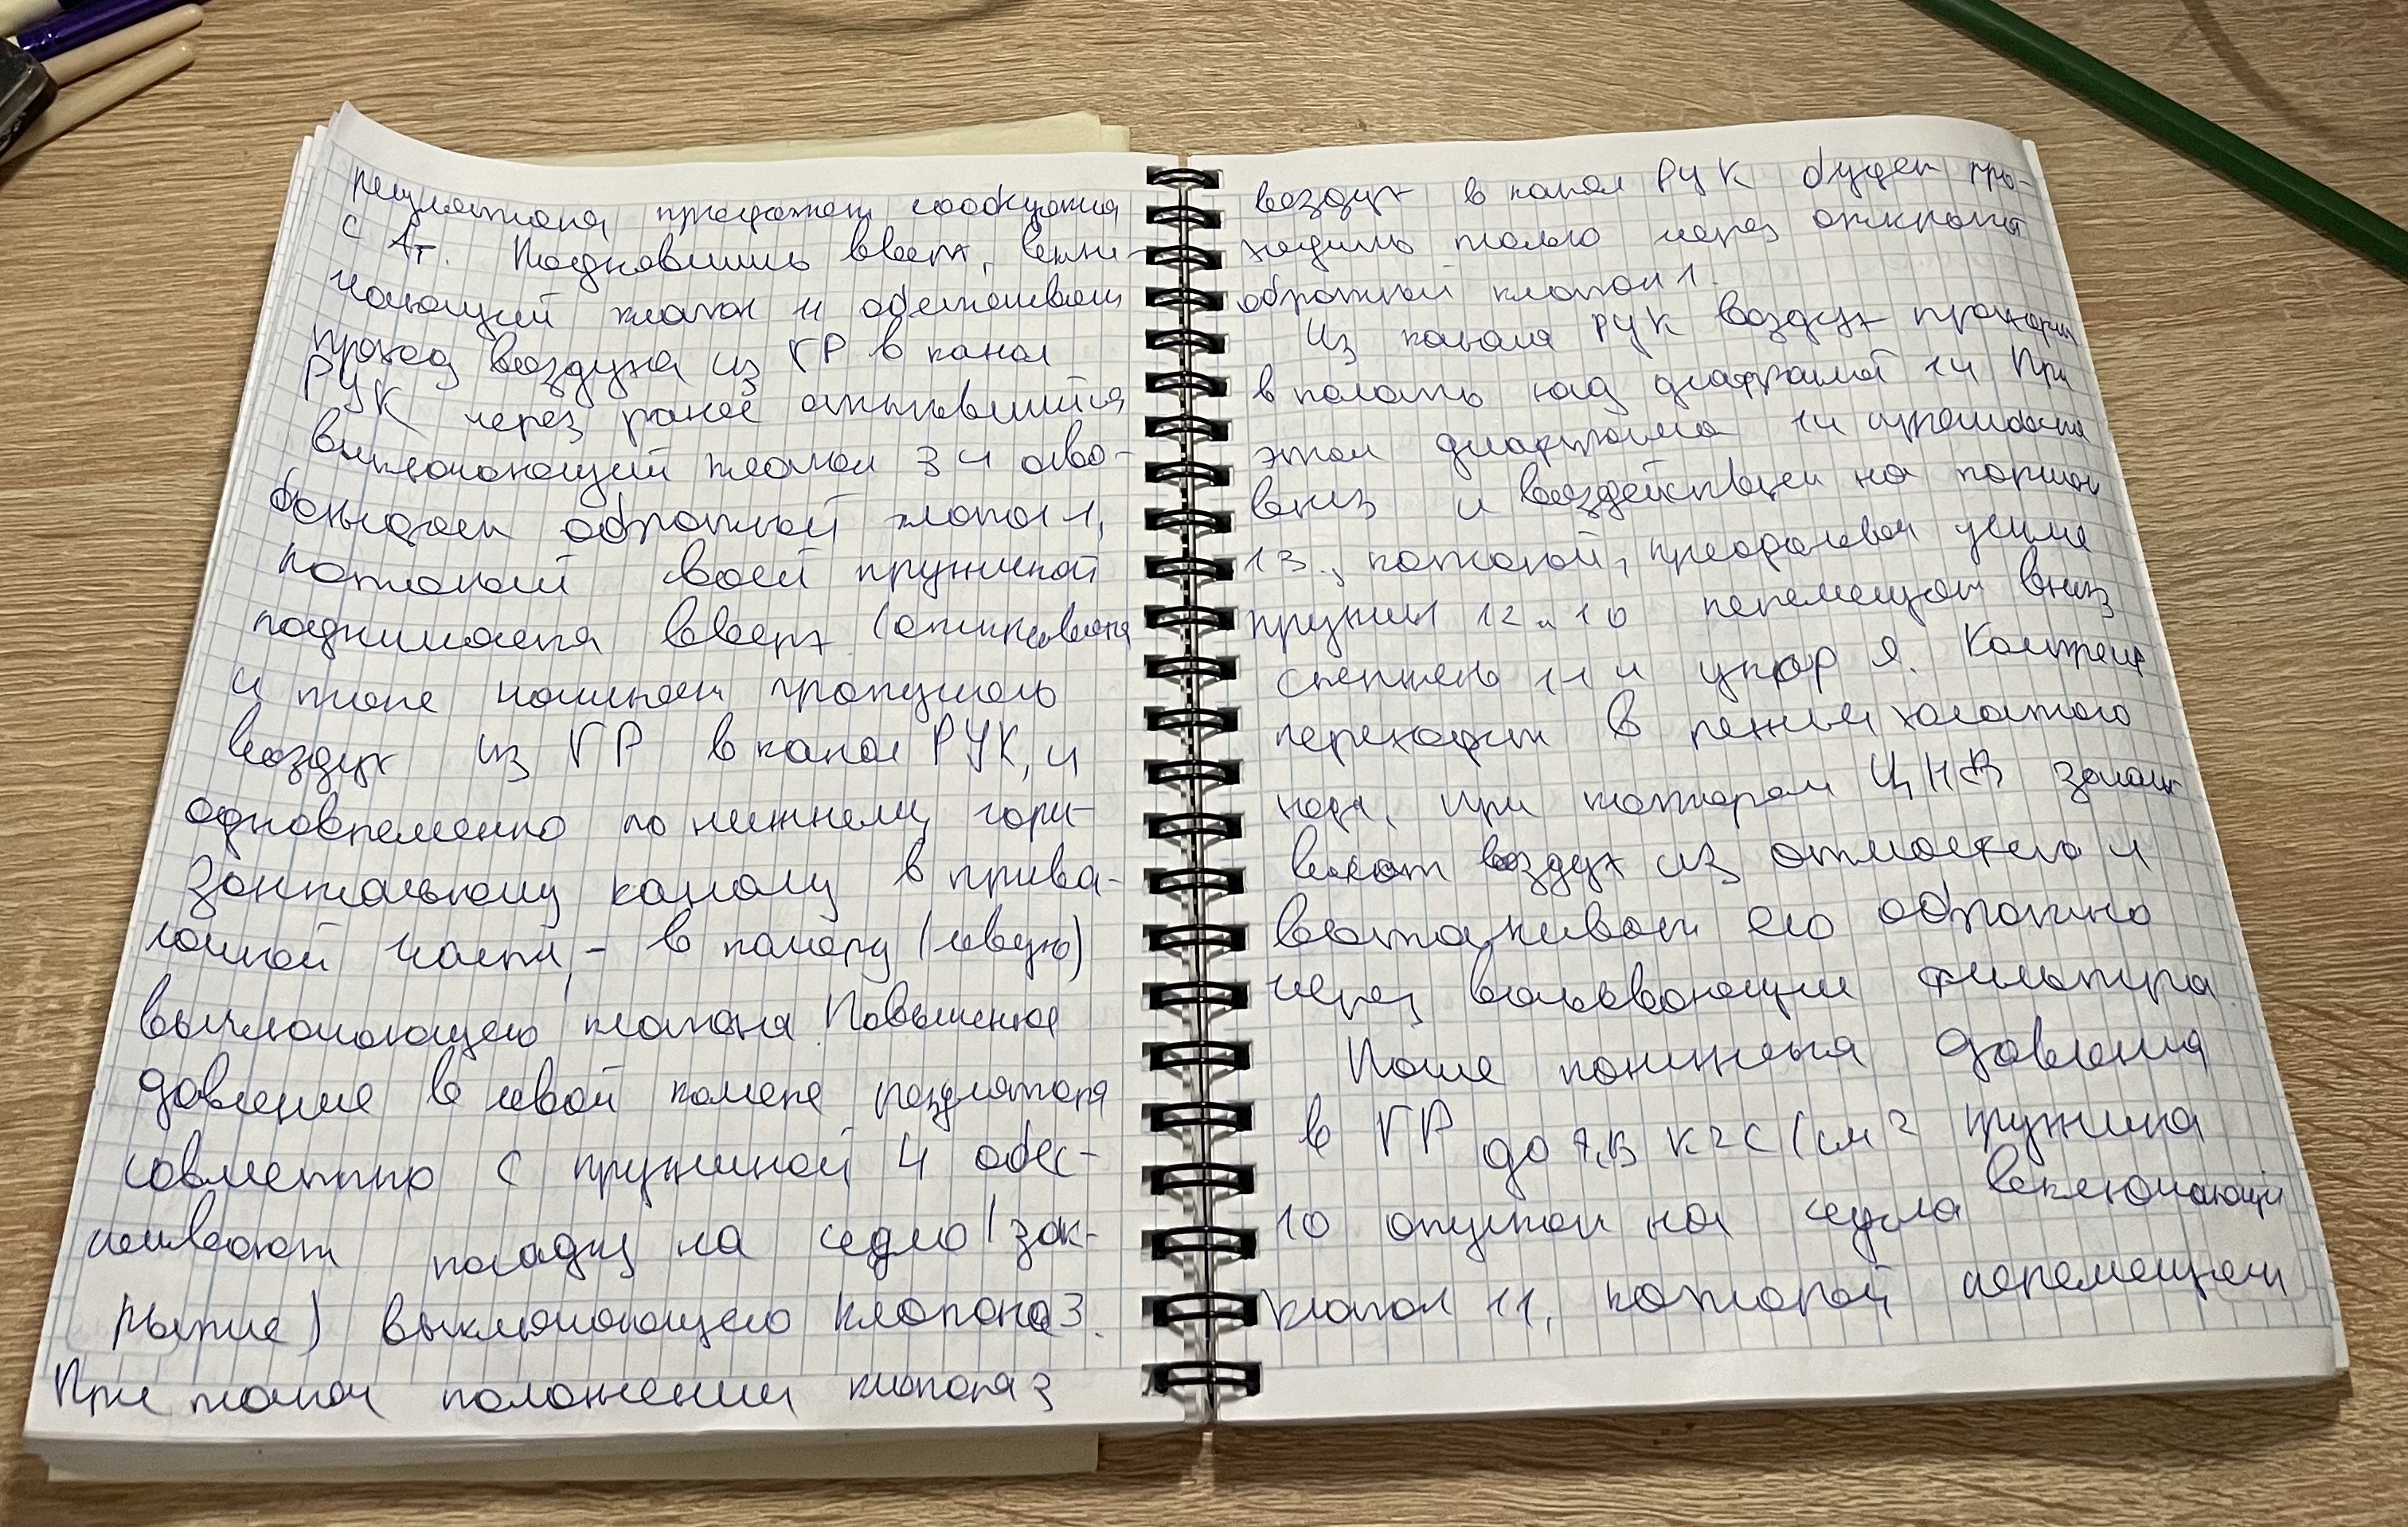 регулятора прекратит сообщения
с Ат. Поднявшись вверх, вклю-
чающий клапан 11 обеспечивает
проход воздуха из ГР в канал
РУК через ранее открывшийся
выключающий клапан 3 и осво-
бождает обратный клапан 1,
который своей пружиной
поднимается вверх (открывается
и тоже начинает пропускать
воздух из ГР в канал РУК, и
одновременно по нижнему гори-
зонтальному каналу в прива-
лочной части, - в камеру (левую)
выключающего клапана. Повышенное
давление в левой камере регулятора
совместно с пружиной 4 обес-
печивают посадку на седло (зак-
рытие) выключающего клапана 3.
При таком положении клапана 3
воздух в канал РУК будет про-
ходить только через открытый
обратный клапан 1.
Из канала РУК воздух проходит
в полость над диафрагмой 14 При
этом диафрагма 14 прогибается
вниз и воздействует на поршень
13, который, преодолевая усилие
пружин 12 и 10 перемещает вниз
стержень 11 и упор 9. Компрессор
переходит в режим холостого
хода, при котором ЦНД засасы
вают воздух из атмосферы и
выталкивают его обратно
через всасывающие фильтра.
После понижения давления
в ГР до 7,5 кгс/см2 пружина
10 опустит на седло включающий
клапан 11, который перемещает